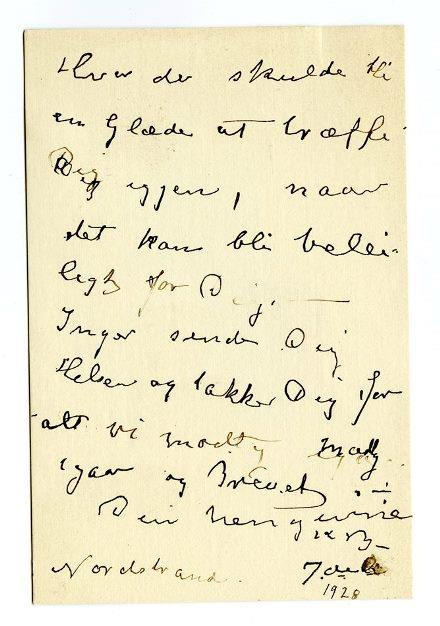 Hvor der skulde bli
en Glæde at træffe
Dig igjen, naar
det kan bli belei-
ligt for Dig. —
Inger sender Dig
Hilsen og takker Dig for
alt vi modtog
igaar og Brevet
Din hengivne
Nordstrand.
1928